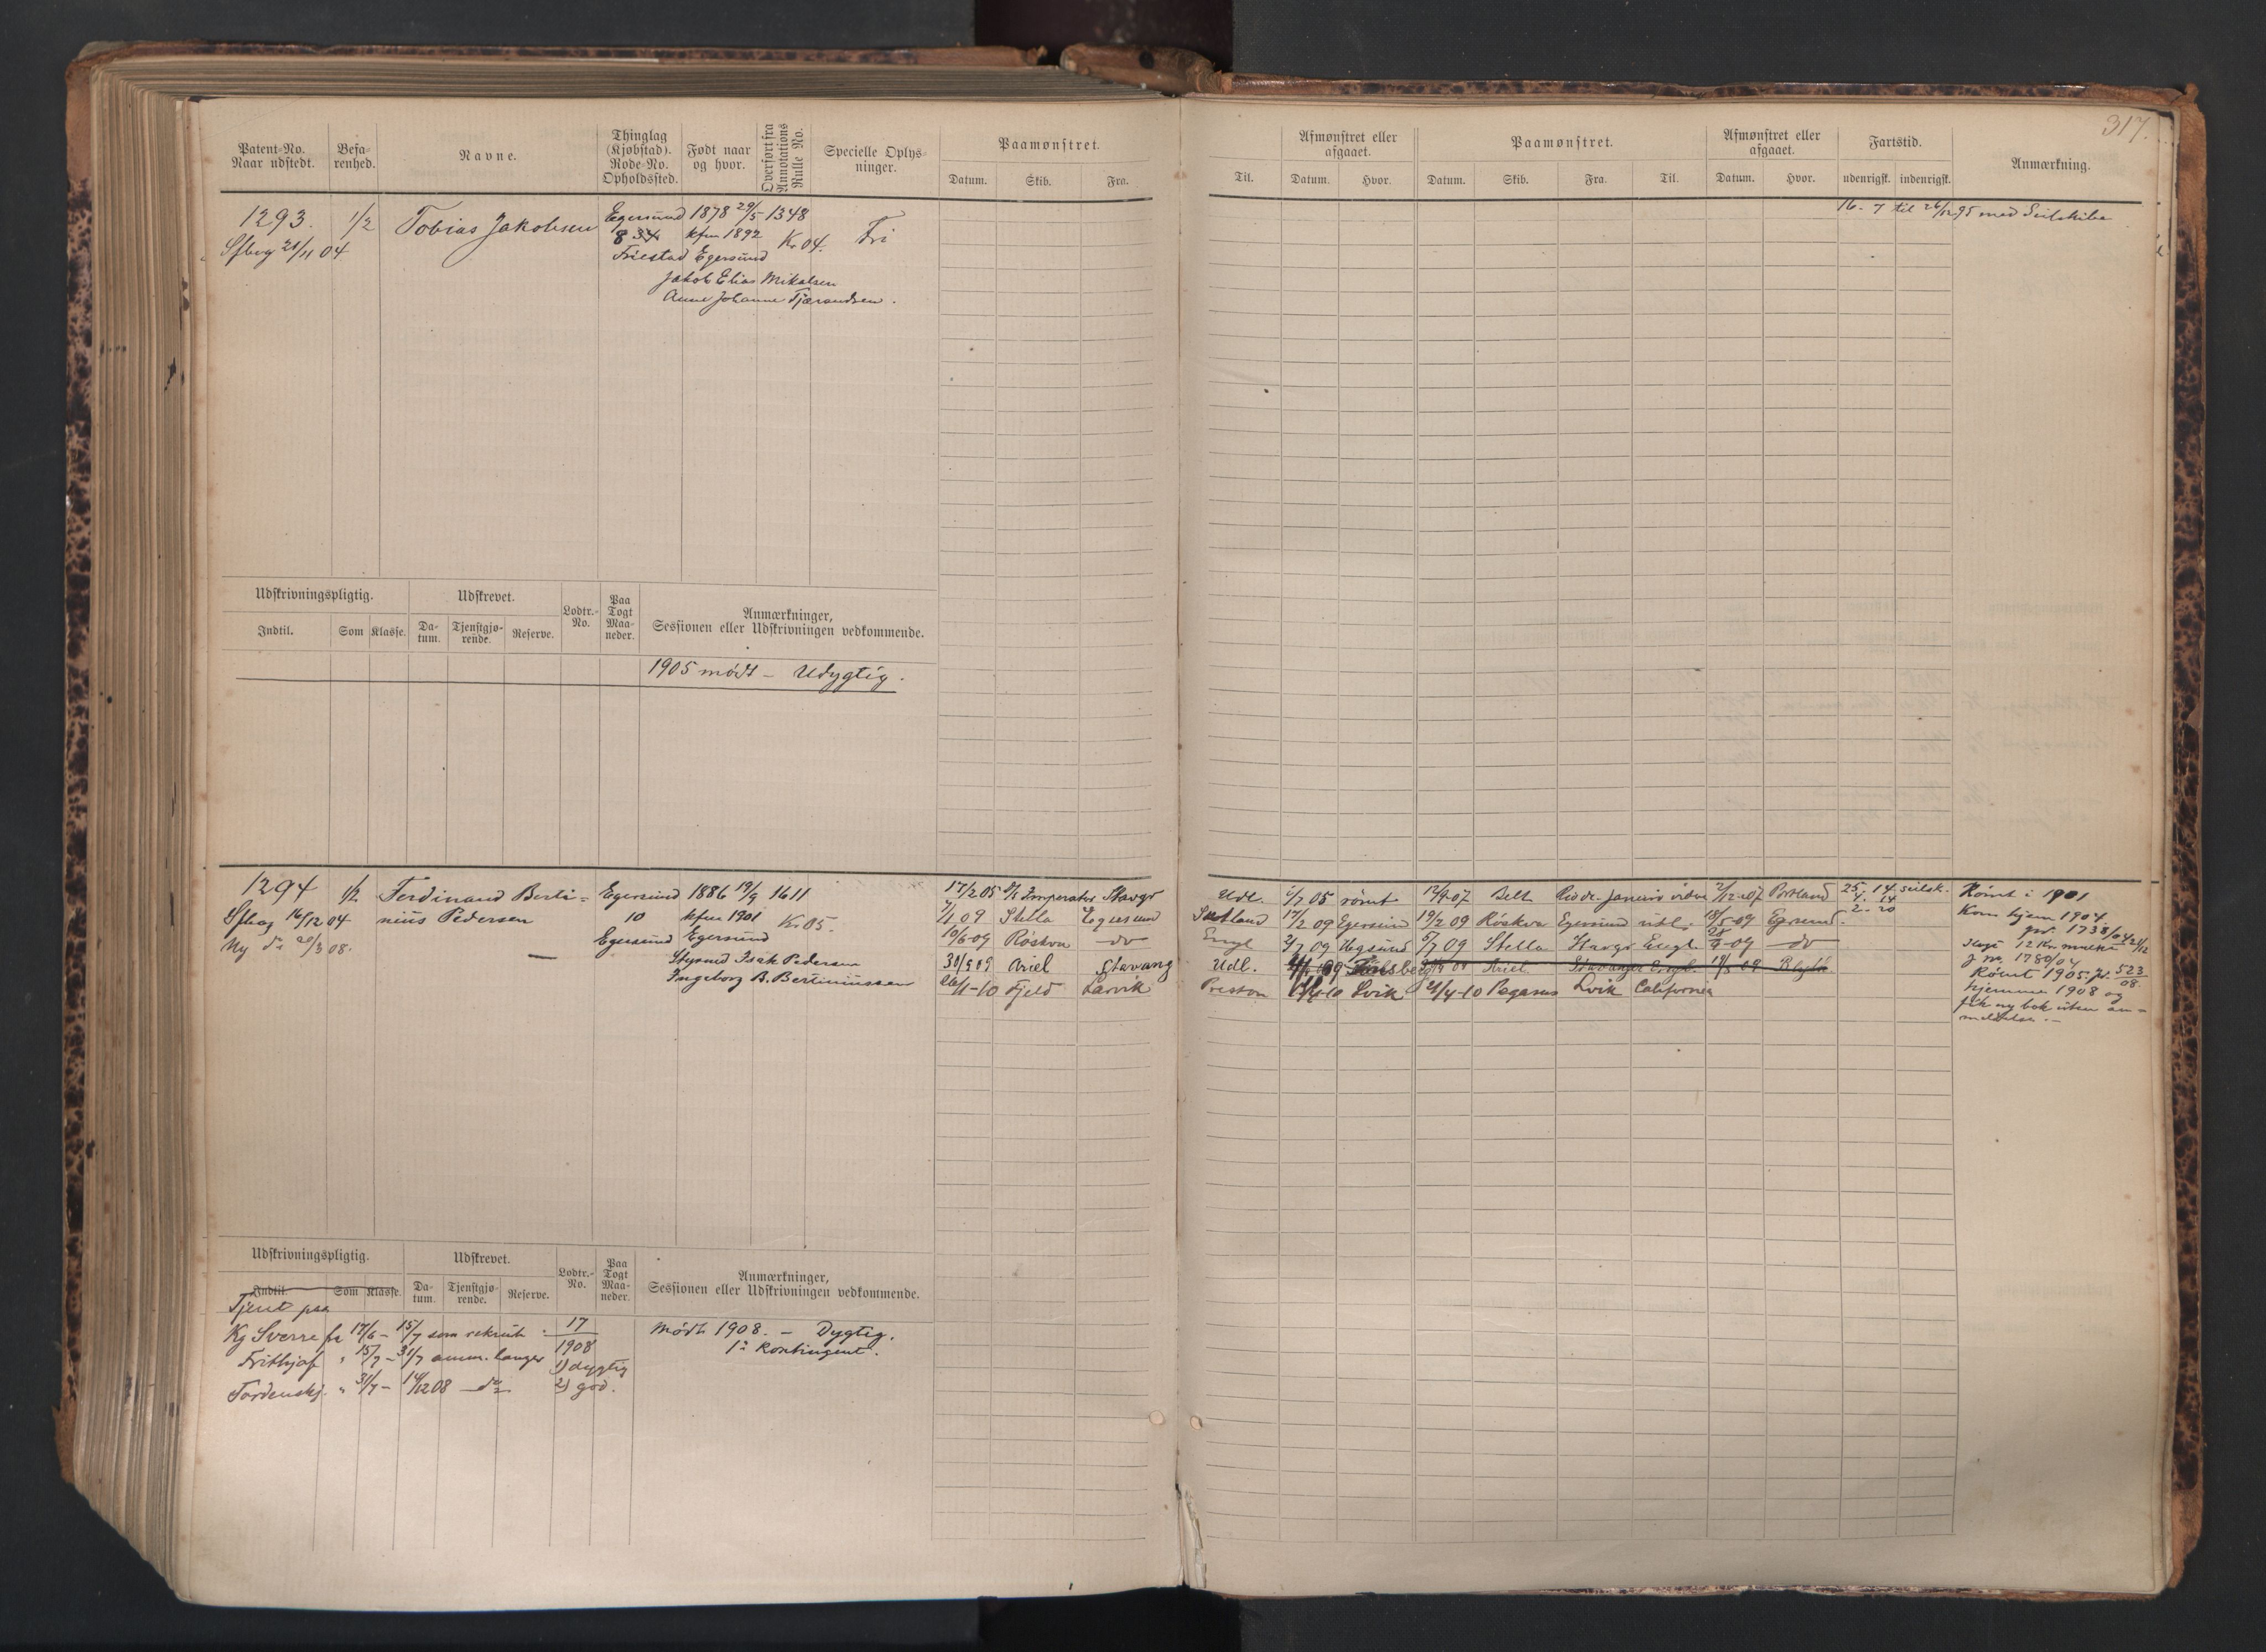 317.
Patent-No. Naar udstedt.
Befarenhed.
Navne.
Thinglag (Kjøbstad). Rode-No. Opholdssted.
Født naar og hvor.
Overført fra Annotations Rulle No.
Specielle Oplysninger.
Paamønstret.
Datum. Skib. Fra.
Til.
Afmønstret eller afgaaet.
Datum. Hvor.
Paamønstret.
Datum. Skib. Fra. Til.
Afmønstret eller afgaaet.
Datum. Hvor.
Fartstid.
udenrigsk. indenrigsk.
Anmærkning.
1293. 1/2 Tobias Jakobsen Egersund 1878 29/5 1348
Sfbog 21/11 04 8 34 kfm 1892 Kr 04. Fri
Friestad Egersund
Jakob Elias Mikalsen
Anne Johanne Tjærandsen.
16-7 til 26/12 95 med Seilskibe
Udskrivningspligtig. Udskrevet. Lodtr.-No. Paa Togt Maaneder. Anmærkninger, Sessionen eller Udskrivningen vedkommende.
Indtil. Som Klasse. Datum. Tjenstgjørende. Reserve.
1905 mødt - Udygtig.
1294 1/2 Ferdinand Berti- Egersund 1886 19/9 1611
Sfbog 16/12 04 nius Pedersen 10 kfm 1901 Kr 05.
Ny do 20/3 08. Egersund Egersund
Styrmd Isak Pedersen
Ingeborg B. Bertiniussen
17/2 05 Imperator Stavgr Udl. 05 rømt 12/9-07 Belt Rio de Janeiro 2/12-07 Portland 25. 14 seilsk.
7/1 09 Stella Egersund 17/2 09 Egersund 19/2 09 Røskva Egersund 18/5-09 Egersund
10/6-09 Røskva do Engl 2/7 09 5/7 09 Stella Havgr Engl. -09 do
30/9 09 Ariel Stavang Udl. 09 Ariel Stavanger Engl.
26/1-10 Fjeld Larvik Preston -10 Lvik 21/4-10 Pegasus Lvik California
4. 14
2. 20
Rømt i 1901
Kom hjem 1904
1738/04 21/12
12 Kr. mulkt
j no 1780/04
Rømt 1905. jr. 523/08
hjemme 1908 og
fik ny bok uten an-
meldelse. -
Udskrivningspligtig. Udskrevet. Lodtr.-No. Paa Togt Maaneder. Anmærkninger, Sessionen eller Udskrivningen vedkommende.
Indtil. Som Klasse. Datum. Tjenstgjørende. Reserve.
Tjent paa
Kg Sverre fr 17/6 - 15/7 som rekrut 17 Mødt 1908. - Dygtig.
Frithjof " 15/7 - 31/7 amm. langer 1908 1ste Kontingent.
Tordenskj. " 31/7 - 14/12 08 do 1) dygtig
2) god.